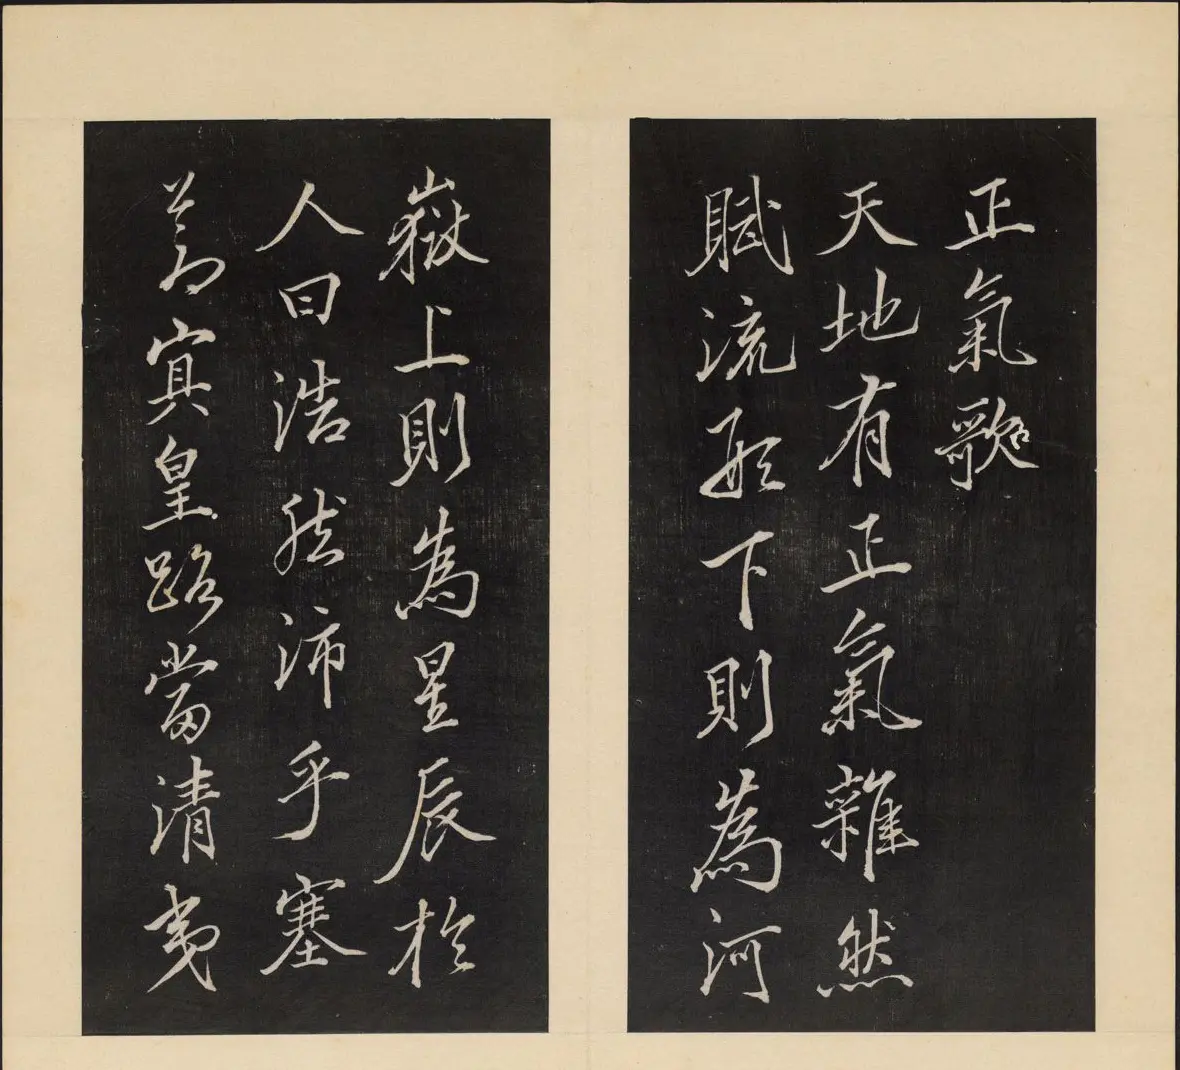 正氣歌
天地有正氣雜然
賦流形下則為河
嶽上則為星辰於
人曰浩然沛乎塞
蒼冥皇路當清夷